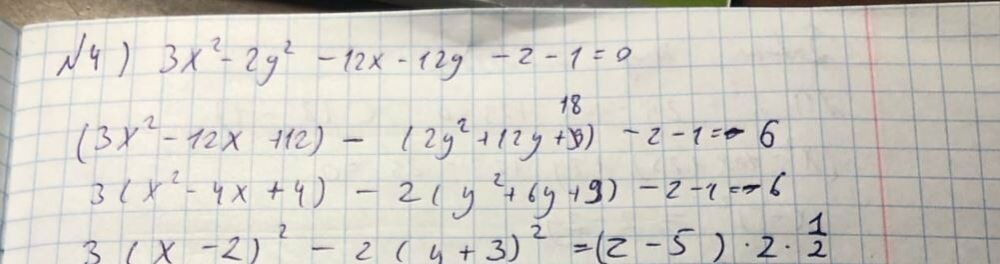 №4) 3x² - 2y² - 12x - 12y - z - 1 = 0
(3x² - 12x + 12) - (2y² + 12y + 18) - z - 1 = - 6
3(x² - 4x + 4) - 2(y² + 6y + 9) - z - 1 = - 6
3(x - 2)² - 2(y + 3)² = (z - 5) · 2 · 1/2